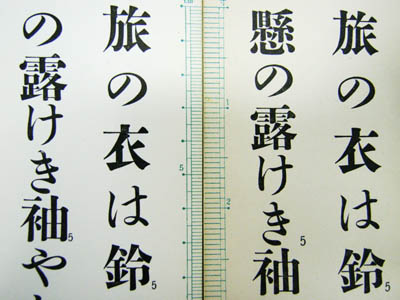 旅の衣は鈴5
懸の露けき5袖
旅の衣は鈴5
の露けき袖5や